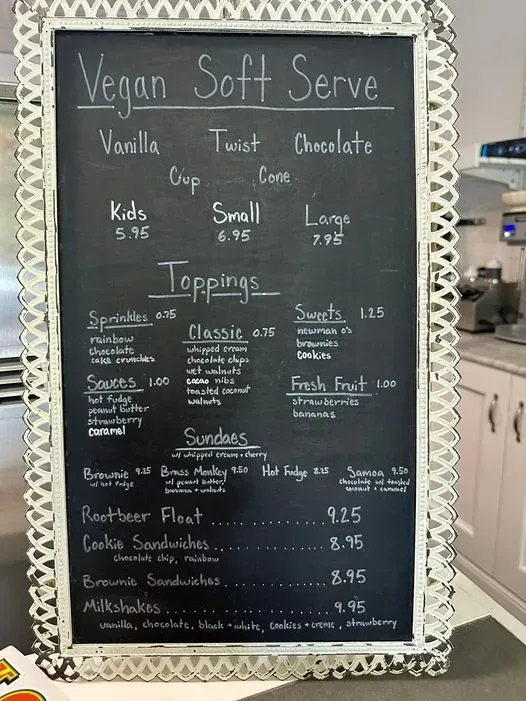 Vegan Soft Serve
Vanilla Twist Chocolate
Cup Cone
Kids Small Large
5.95 6.95 7.95
Toppings
Sprinkles 0.75
rainbow
chocolate
cake crunchies
Classic 0.75
whipped cream
chocolate chips
wet walnuts
cacao nibs
toasted coconut
walnuts
Sweets 1.25
newman o's
brownies
cookies
Sauces 1.00
hot fudge
peanut butter
strawberry
caramel
Fresh Fruit 1.00
strawberries
bananas
Sundaes
w/ whipped cream + cherry
Brownie 9.25
w/ hot fudge
Brass Monkey 9.50
w/ peanut butter,
banana + walnuts
Hot Fudge 8.25
Samoa 9.50
chocolate w/ toasted
coconut + caramel
Rootbeer Float ............ 9.25
Cookie Sandwiches ............ 8.95
chocolate chip, rainbow
Brownie Sandwiches ............ 8.95
Milkshakes ............ 9.95
vanilla, chocolate, black + white, cookies + creme, strawberry